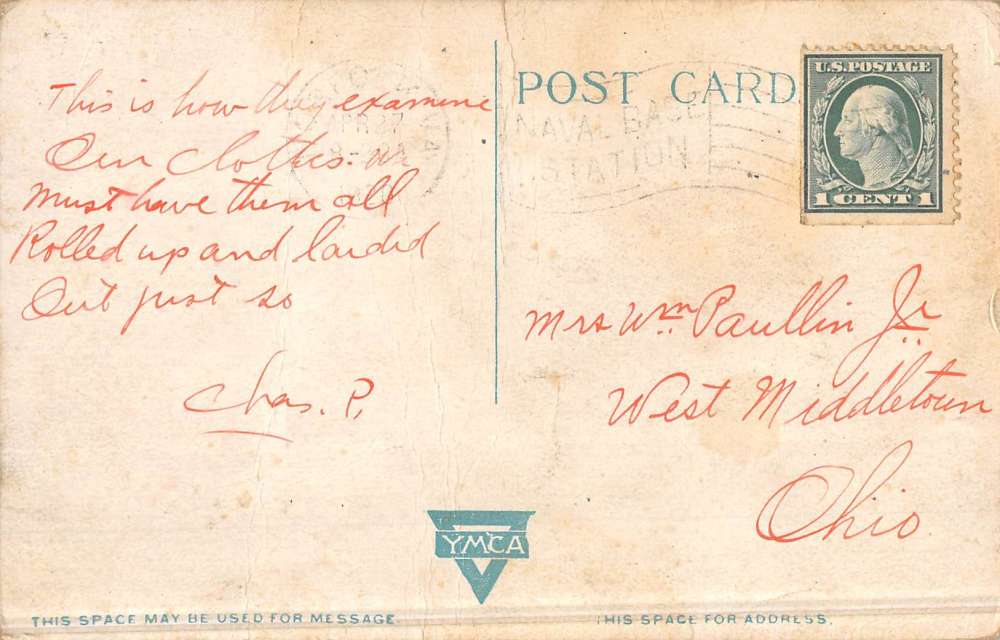 This is how they examine
Our clothes. we
must have them all
Rolled up and laided
Out just so
Chas. P.
POST CARD
NAVAL BASE
STATION
U.S. POSTAGE
1 CENT 1
Mrs Wm. Paullin Jr
West Middletown
Ohio
YMCA
THIS SPACE MAY BE USED FOR MESSAGE.
THIS SPACE FOR ADDRESS.